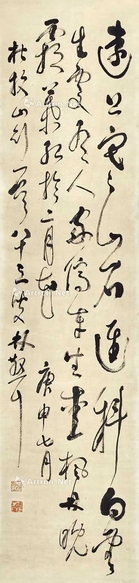 遠上寒山石逕斜白雲
生處有人家停車坐愛楓林晚
霜葉紅於二月花 庚申七月
杜牧山行一首 八十三叟林散耳